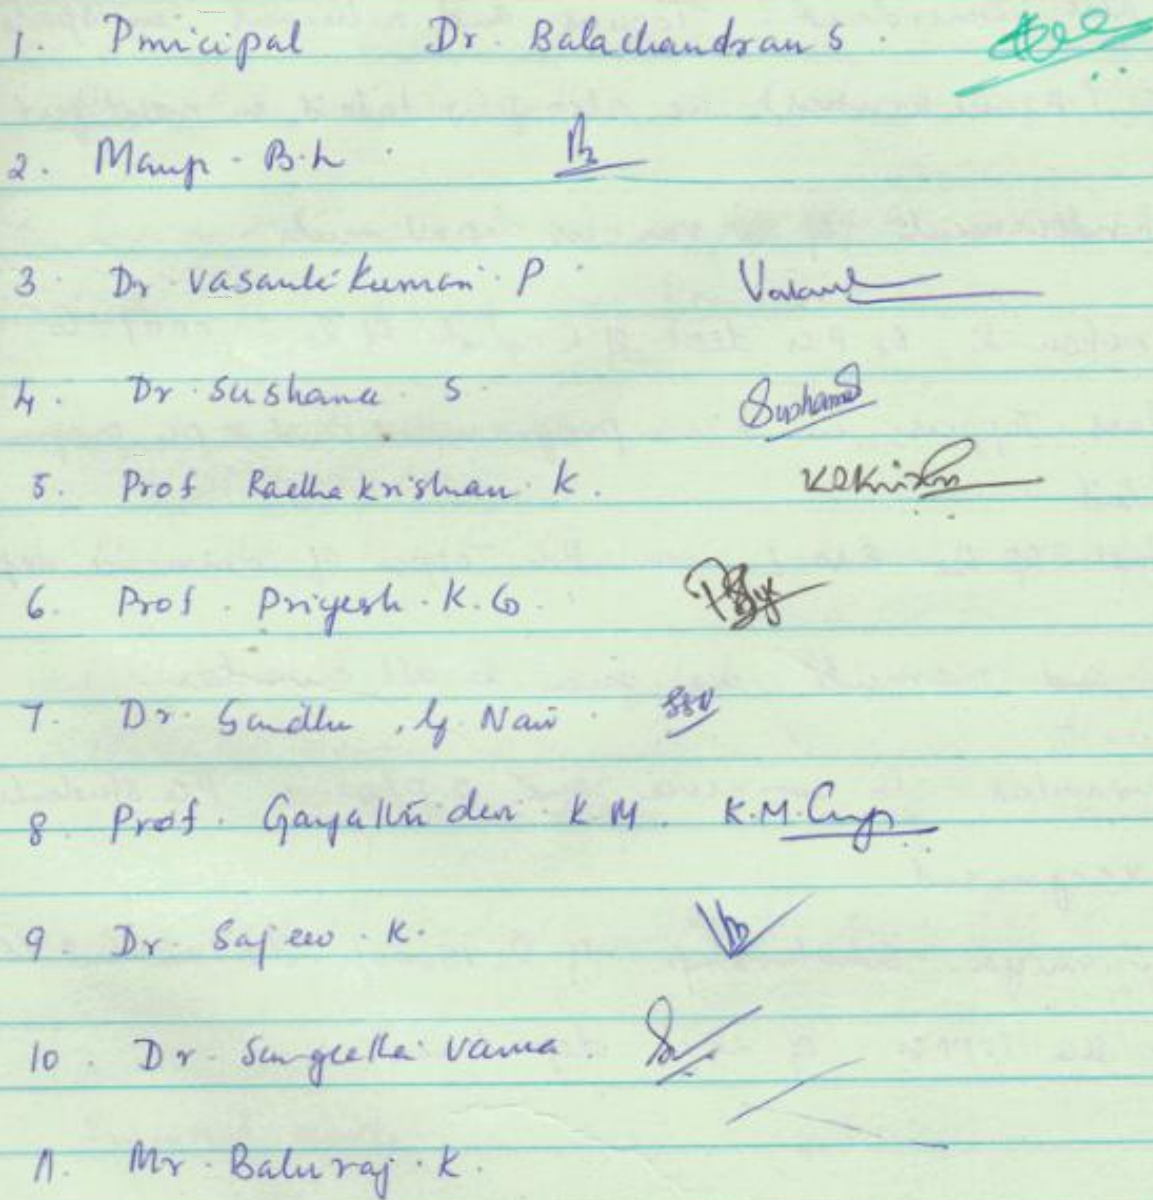 1. Principal Dr. Balachandran S.
2. Manju. B.L
3. Dr Vasantikumari. P Vasant
4. Dr. Sushama S. Sushama S
5. Prof Radhakrishnan K.
6. Prof. Priyesh. K.G.
7. Dr. Sandhu. G. Nair.
8. Prof. Gayathri devi K M. K.M.
9. Dr. Sajeev. K.
10. Dr. Sangeetha Varma
11. Mr. Baluraj. K.